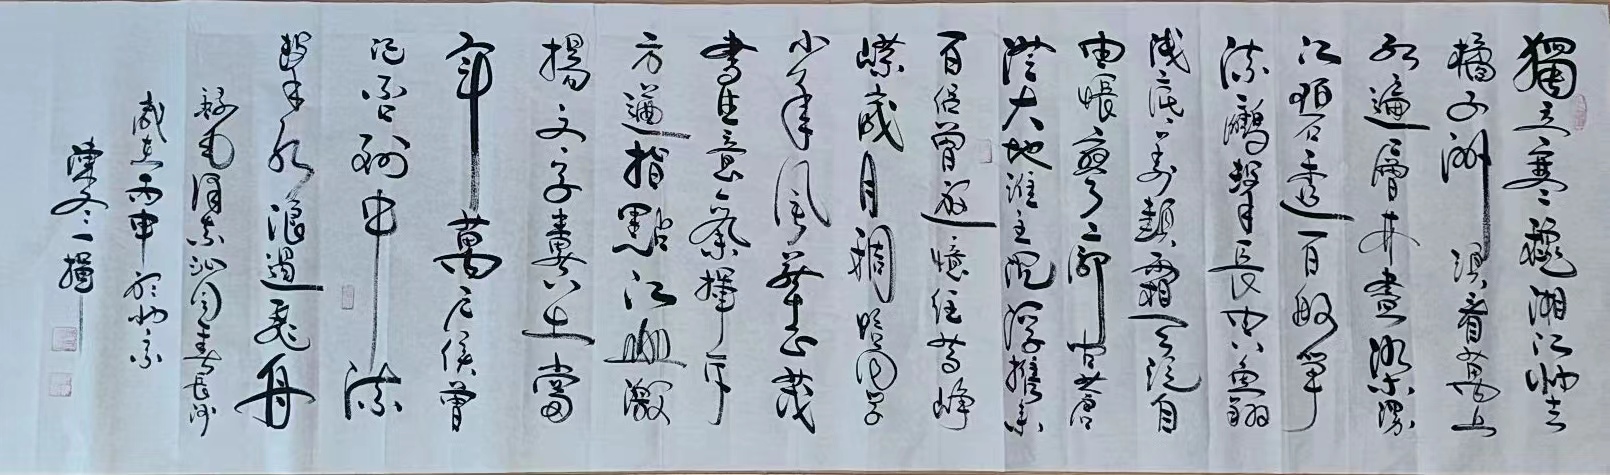 獨立寒秋湘江北去
橘子洲頭看萬山
紅遍層林盡染漫
江碧透百舸爭
流鷹擊長空魚翔
淺底萬類霜天競自
由悵寥廓問蒼
茫大地誰主沉浮攜來
百侶曾遊憶往昔崢
嶸歲月稠恰同學
少年風華正茂
書生意氣揮斥
方遒指點江山激
揚文字糞土當
年萬戶侯曾
記否到中流
擊水浪遏飛舟
錄毛澤東沁園春長沙
歲在丙申於北京